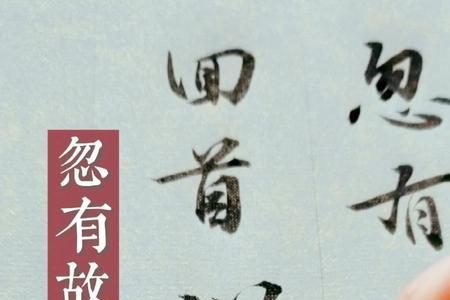 忽有
回首
忽有故